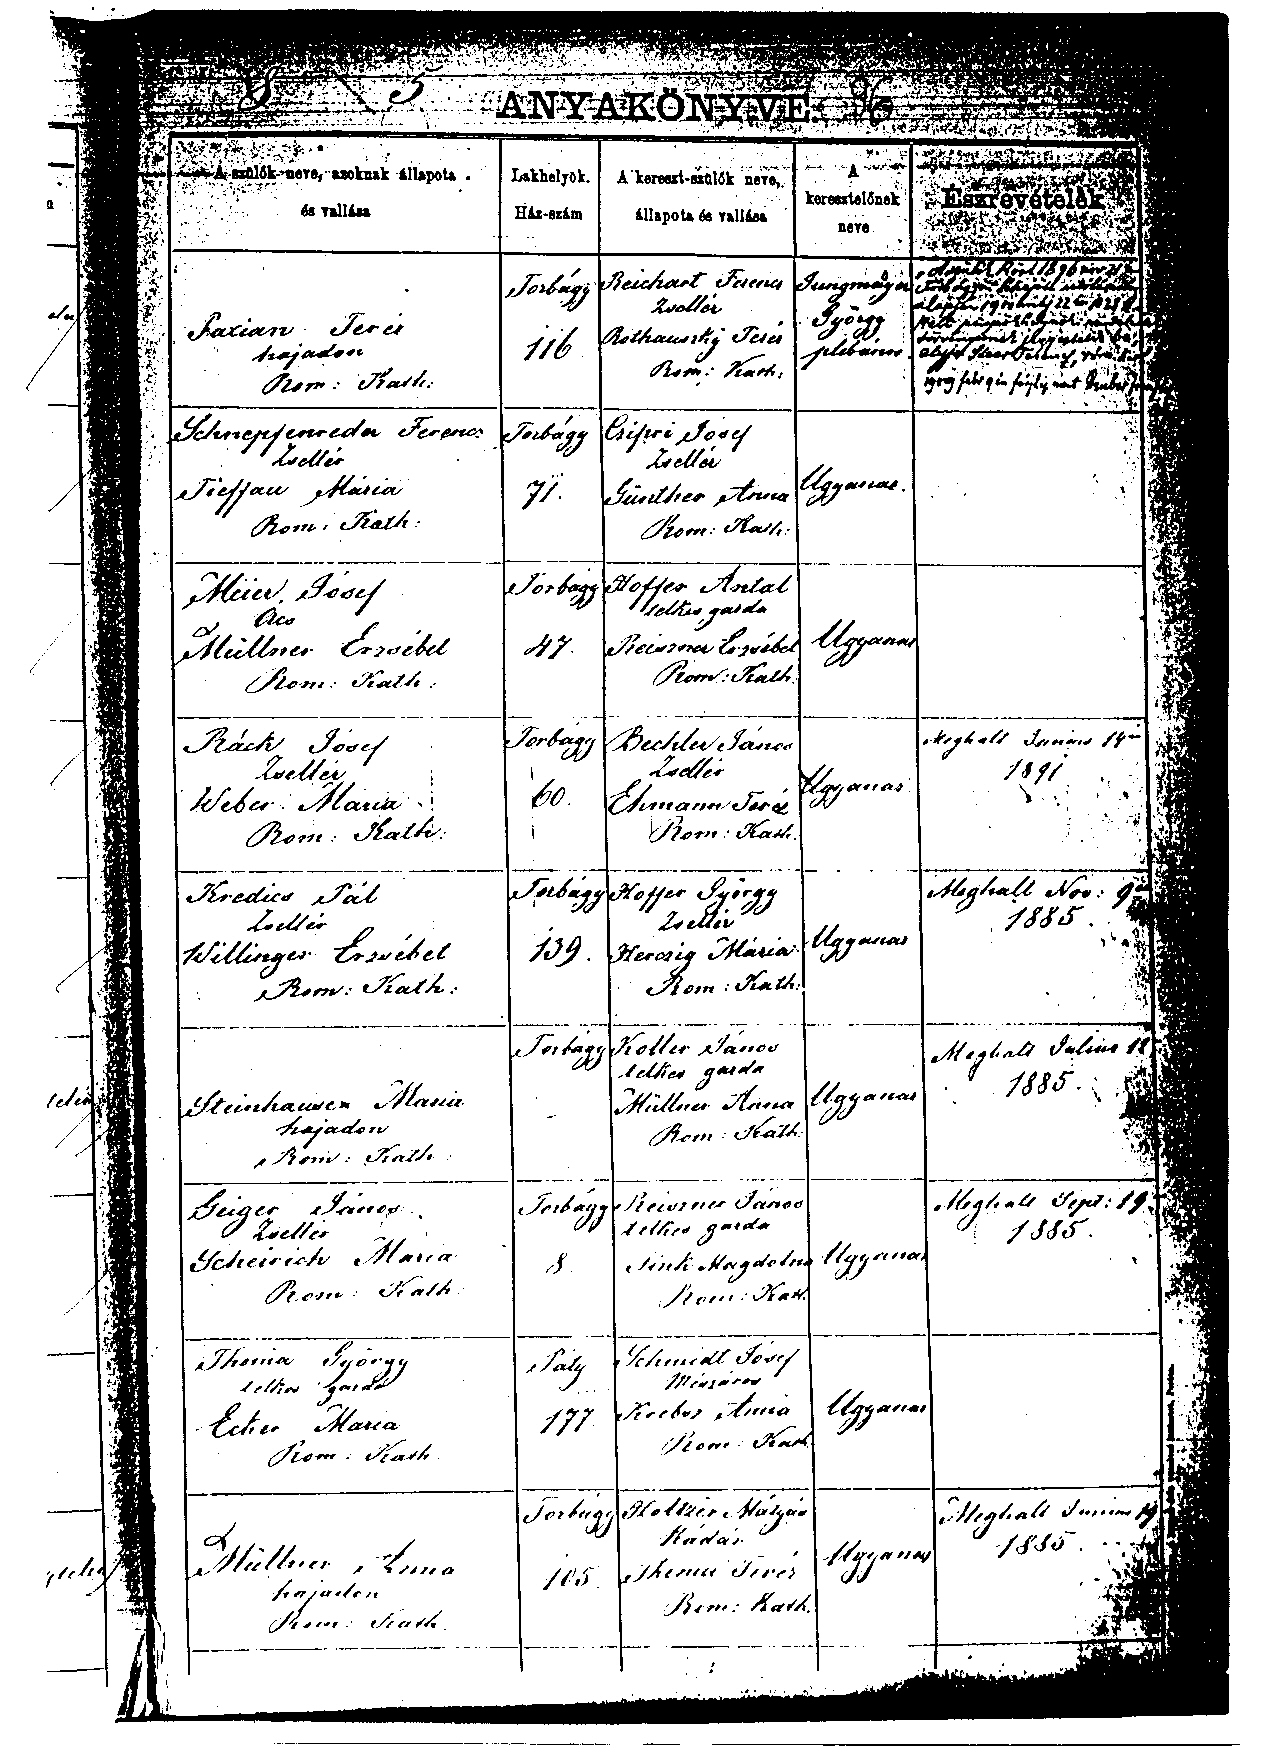 8 5
ANYAKÖNYVE. 86
A szülők neve, azoknak állapota
és vallása
Lakhelyök.
Ház-szám
A kereszt-szülők neve,
állapota és vallása
A
keresztelőnek
neve
Észrevételek
Faxian Teréz
hajadon
Rom: Kath:
Torbágy
116
Reichart Ferencz
Zsellér
Rothauszky Teréz
Rom: Kath:
Jungmayer
György
plébános
Schnepfenreder Ferencz
Zsellér
Tieffau Mária
Rom: Kath:
Torbágy
71.
Csipri Josef
Zsellér
Günther Anna
Rom: Kath:
Ugyanas.
Meier József
Ács
Müllner Erzsébet
Rom: Kath:
Torbágy
47.
Hoffer Antal
telkes gazda
Reiszner Erzsébet
Rom: Kath.
Ugyanas
Ráck Jósef
Zsellér
Weber Maria
Rom: Kath:
Torbágy
60.
Bechler János
Zsellér
Ehmann Teréz
Rom: Kath.
Ugyanas
Meghalt Junius 14én
1891
Kredics Pál
Zsellér
Willinger Erzsébet
Rom: Kath:
Torbágy
139.
Hoffer György
Zsellér
Herczig Mária
Rom: Kath:
Ugyanas
Meghalt Nov: 9én
1885.
Steinhauser Maria
hajadon
Rom: Kath:
Torbágy
Koller János
telkes gazda
Müllner Anna
Rom: Kath:
Ugyanas
Meghalt Julius 12
1885.
Geiger János
Zsellér
Scheirich Maria
Rom: Kath:
Torbágy
8.
Reiszner János
telkes gazda
Fink Magdolna
Rom: Kath.
Ugyanas
Meghalt Sept: 19.
1885.
Thoma György
telkes gazda
Ecker Maria
Rom: Kath.
Páty
177
Schmidt Jósef
Mészáros
Krebsz Anna
Rom: Kath.
Ugyanas
Müllner Anna
hajadon
Rom: Kath.
Torbágy
105.
Holtzer Mátyás
Kádár
Thoma Teréz
Rom: Kath.
Ugyanas
Meghalt Junius 19
1885.